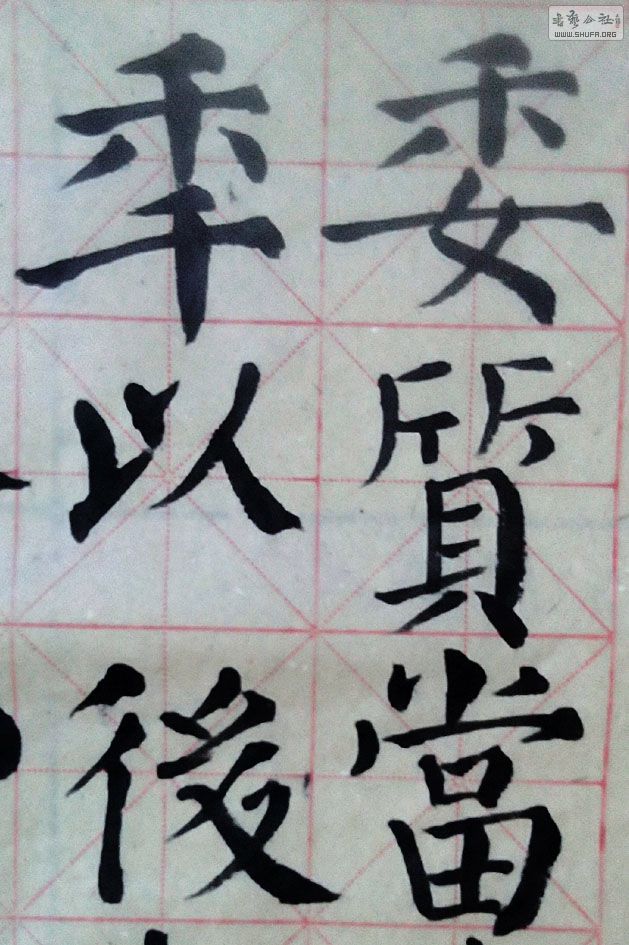 委質當
秊以後
書藝公社
WWW.SHUFA.ORG